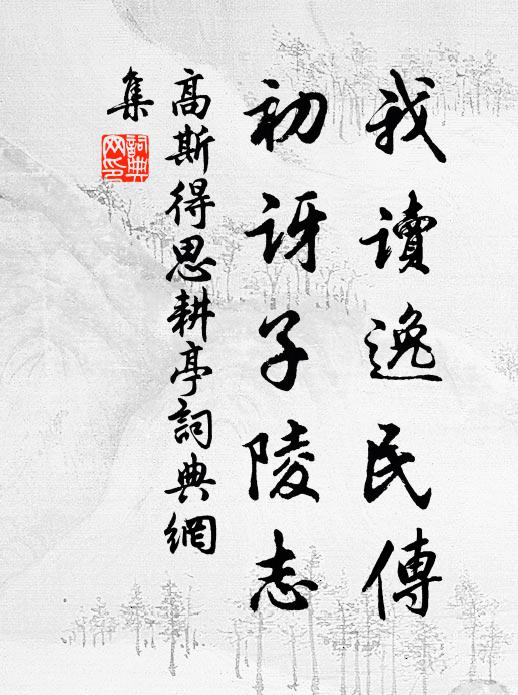 我讀逸民傳
初訝子陵志
高斯得思耕亭詞典網
集
詞典
网印